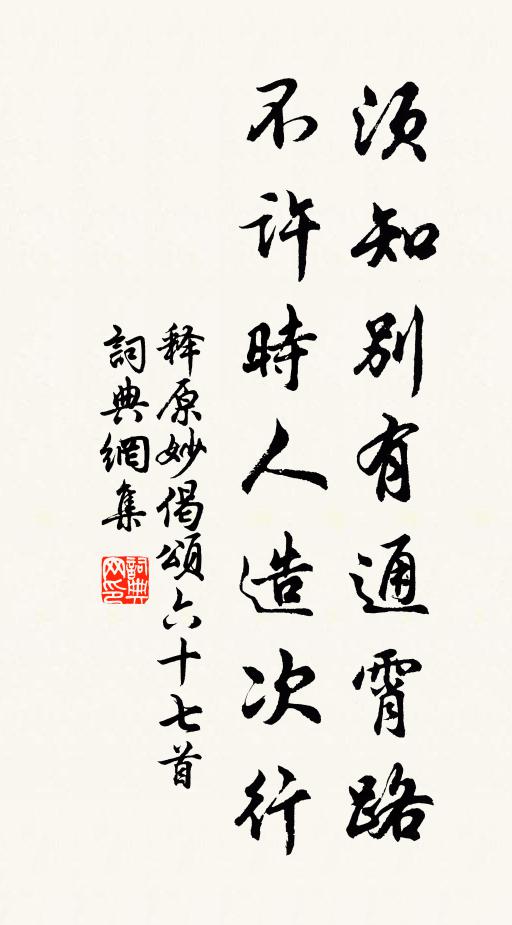 須知別有通霄路
不許時人造次行
释原妙偈頌六十七首
詞典網集
詞典
网印